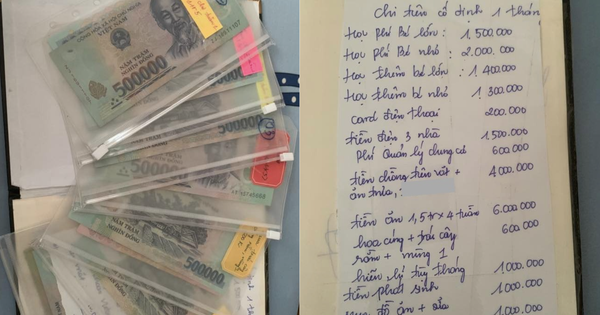 VIỆT NAM
NĂM TRĂM
NGHÌN ĐỒNG
500000
500000
500000
Chi tiền cố định 1 tháng
Học phí bé lớn : 1.500.000
Học phí Bé nhỏ : 2.000.000
Học thêm bé lớn : 1.400.000
Học thêm bé nhỏ 1.300.000
Card điện thoại 200.000
tiền điện 3 nhà 1.500.000
Phí Quản lý chung cư 600.000
tiền chồng tiêu vặt + 4.000.000
ăn trưa
tiền ăn 1,5tr x 4 tuần 6.000.000
hoa cúng + trái cây 600.000
rằm + mùng 1
hiếu hỷ tùy tháng 1.000.000
tiền phát sinh 1.000.000
đồ ăn + sữa 1.000.000